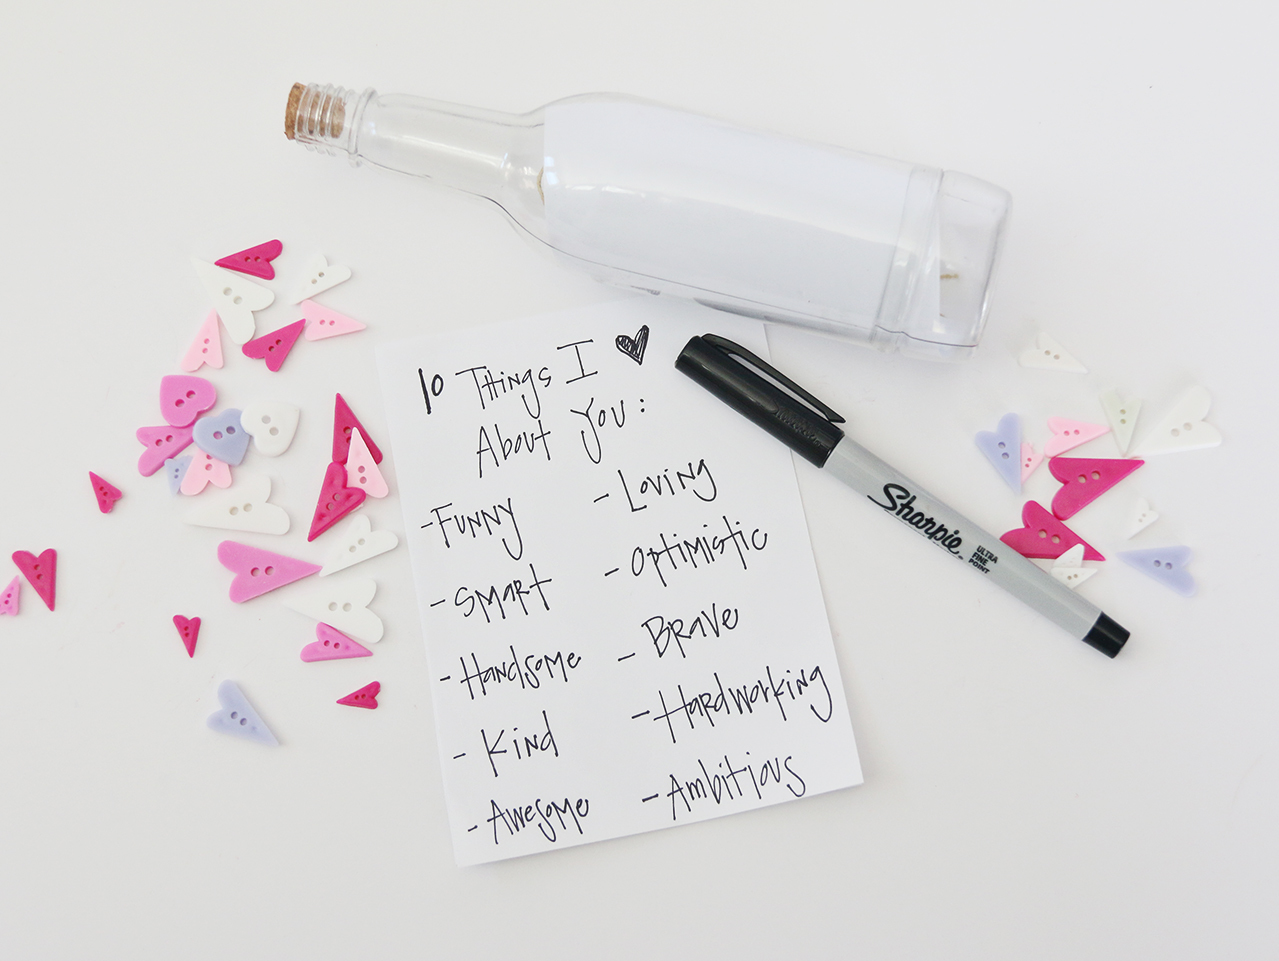 10 Things I ♥
About You:
- Funny
- Smart
- Handsome
- Kind
- Awesome
- Loving
- Optimistic
- Brave
- Hardworking
- Ambitious
Sharpie.
ULTRA
FINE
POINT